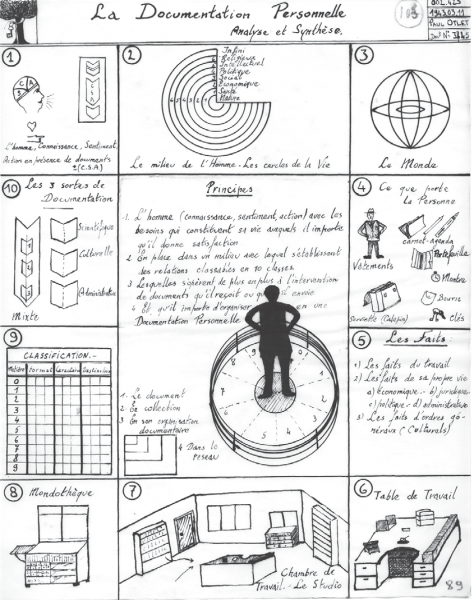 La Documentation Personnelle
Analyse et Synthèse.
PAUL OTLET
1
C A
S
L'homme, Connaissance, Sentiment,
Action en présence de documents
(C.S.A)
2
Infini
Religieux
Intellectuel
Politique
Social
Economique
Santé
Nature
Le milieu de l'Homme - Les cercles de la Vie
3
Le Monde
10
Les 3 sortes de
Documentation
Scientifique
Culturelle
Administrative
Mixte
Principes
1. L'homme (connaissance, sentiment, action) avec les
besoins qui constituent sa vie auxquels il importe
qu'il donne satisfaction
2. En place dans un milieu avec lequel s'établissent
des relations classables en 10 classes.
3. Lesquelles s'opèrent de plus en plus à l'intervention
de documents qu'il reçoit ou qu'il envoie
4. Et qu'il importe d'organiser en une
Documentation Personnelle
1. Le document
2. En collection
3. En son organisation
documentaire
4 Dans le
réseau
4
Ce que porte
la Personne
Vêtements
carnet-agenda
Portefeuille
Montre
Bourse
Clés
Serviette (Calepin)
5
Les Faits.
1) Les faits du travail
2) Les faits de sa propre vie
a) économique - b) juridique
c) politique - d) administrative
3) Les faits d'ordres gé-
néraux (Culturels)
9
CLASSIFICATION.-
Matière Format Caractère Destination
0
1
2
3
4
5
6
7
8
9
8
Mondothèque
7
Chambre de
Travail. - Le Studio
6
Table de Travail
89